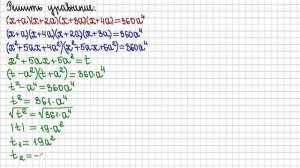 Решить уравнение:
(x+a)(x+2a)(x+3a)(x+4a)=360a⁴
(x+a)(x+4a)(x+2a)(x+3a)=360a⁴
(x²+5ax+4a²)(x²+5ax+6a²)=360a⁴
x²+5ax+5a²=t
(t-a²)(t+a²)=360a⁴
t²-a⁴=360a⁴
t²=361a⁴
√t²=√361a⁴
|t|=19a²
t₁=19a²
t₂=-